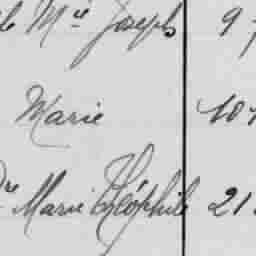 Mie Joseph 9
Marie 10
Dre Marie Théophile 21